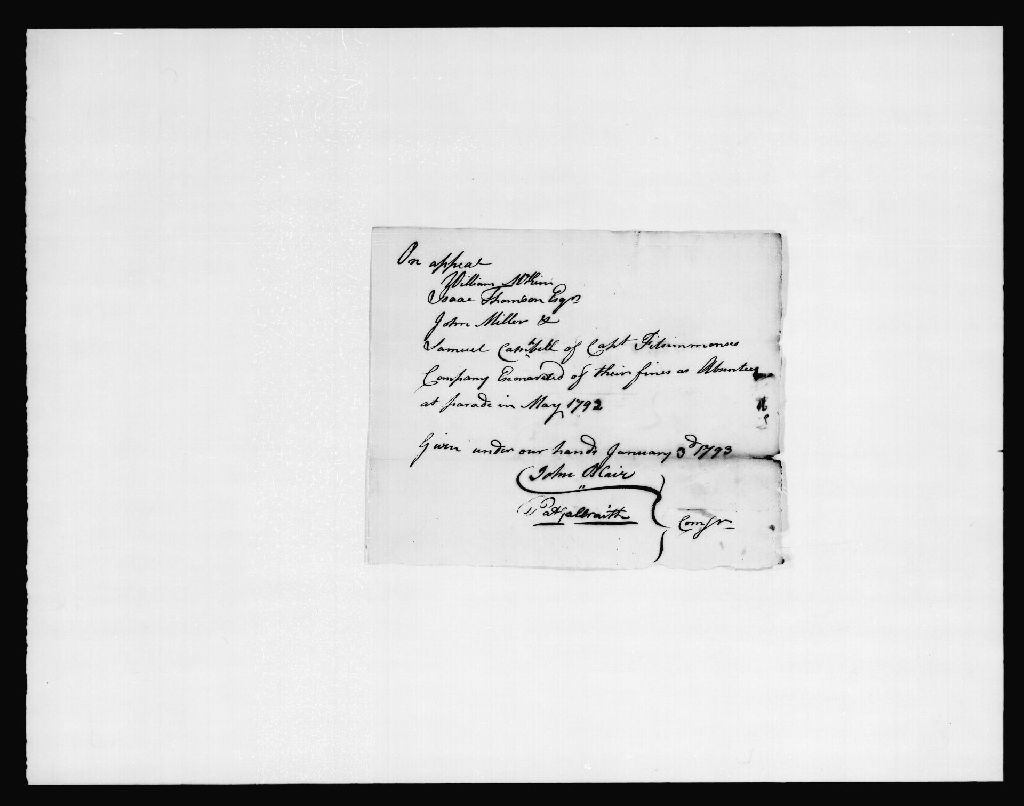 On appeal
William McKim
Isaac Thomson Esqr
John Miller &
Samuel Campbell of Capt Fitsimmonses
Company Exonerated of their fines as Absentees
at parade in May 1792
Given under our hands January 3d 1793
John Blair
Pat Galbraith
Comsrs